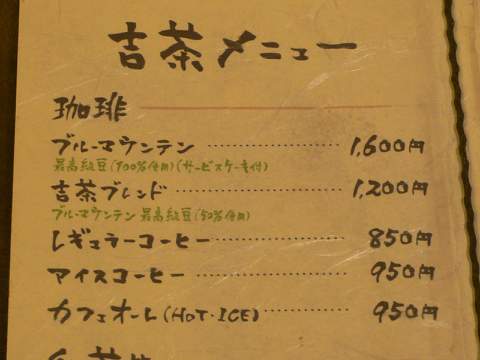 吉茶メニュー
珈琲
ブルーマウンテン ………… 1,600円
最高級豆(100%使用)(サービスケーキ付)
吉茶ブレンド ………… 1,200円
ブルーマウンテン最高級豆(50%使用)
レギュラーコーヒー ………… 850円
アイスコーヒー ………… 950円
カフェオーレ(HOT・ICE) ………… 950円